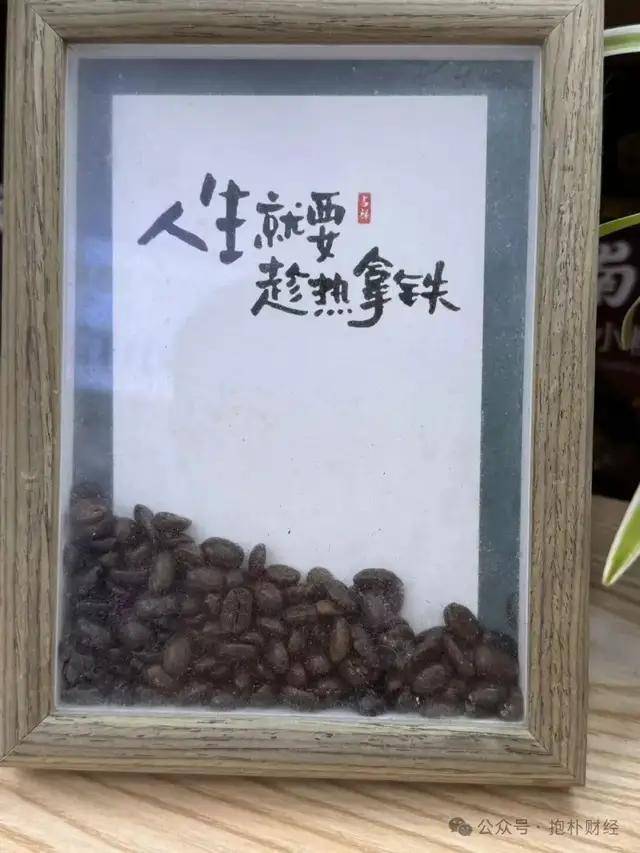 人生就要
趁热拿铁
小
公众号·抱朴财经